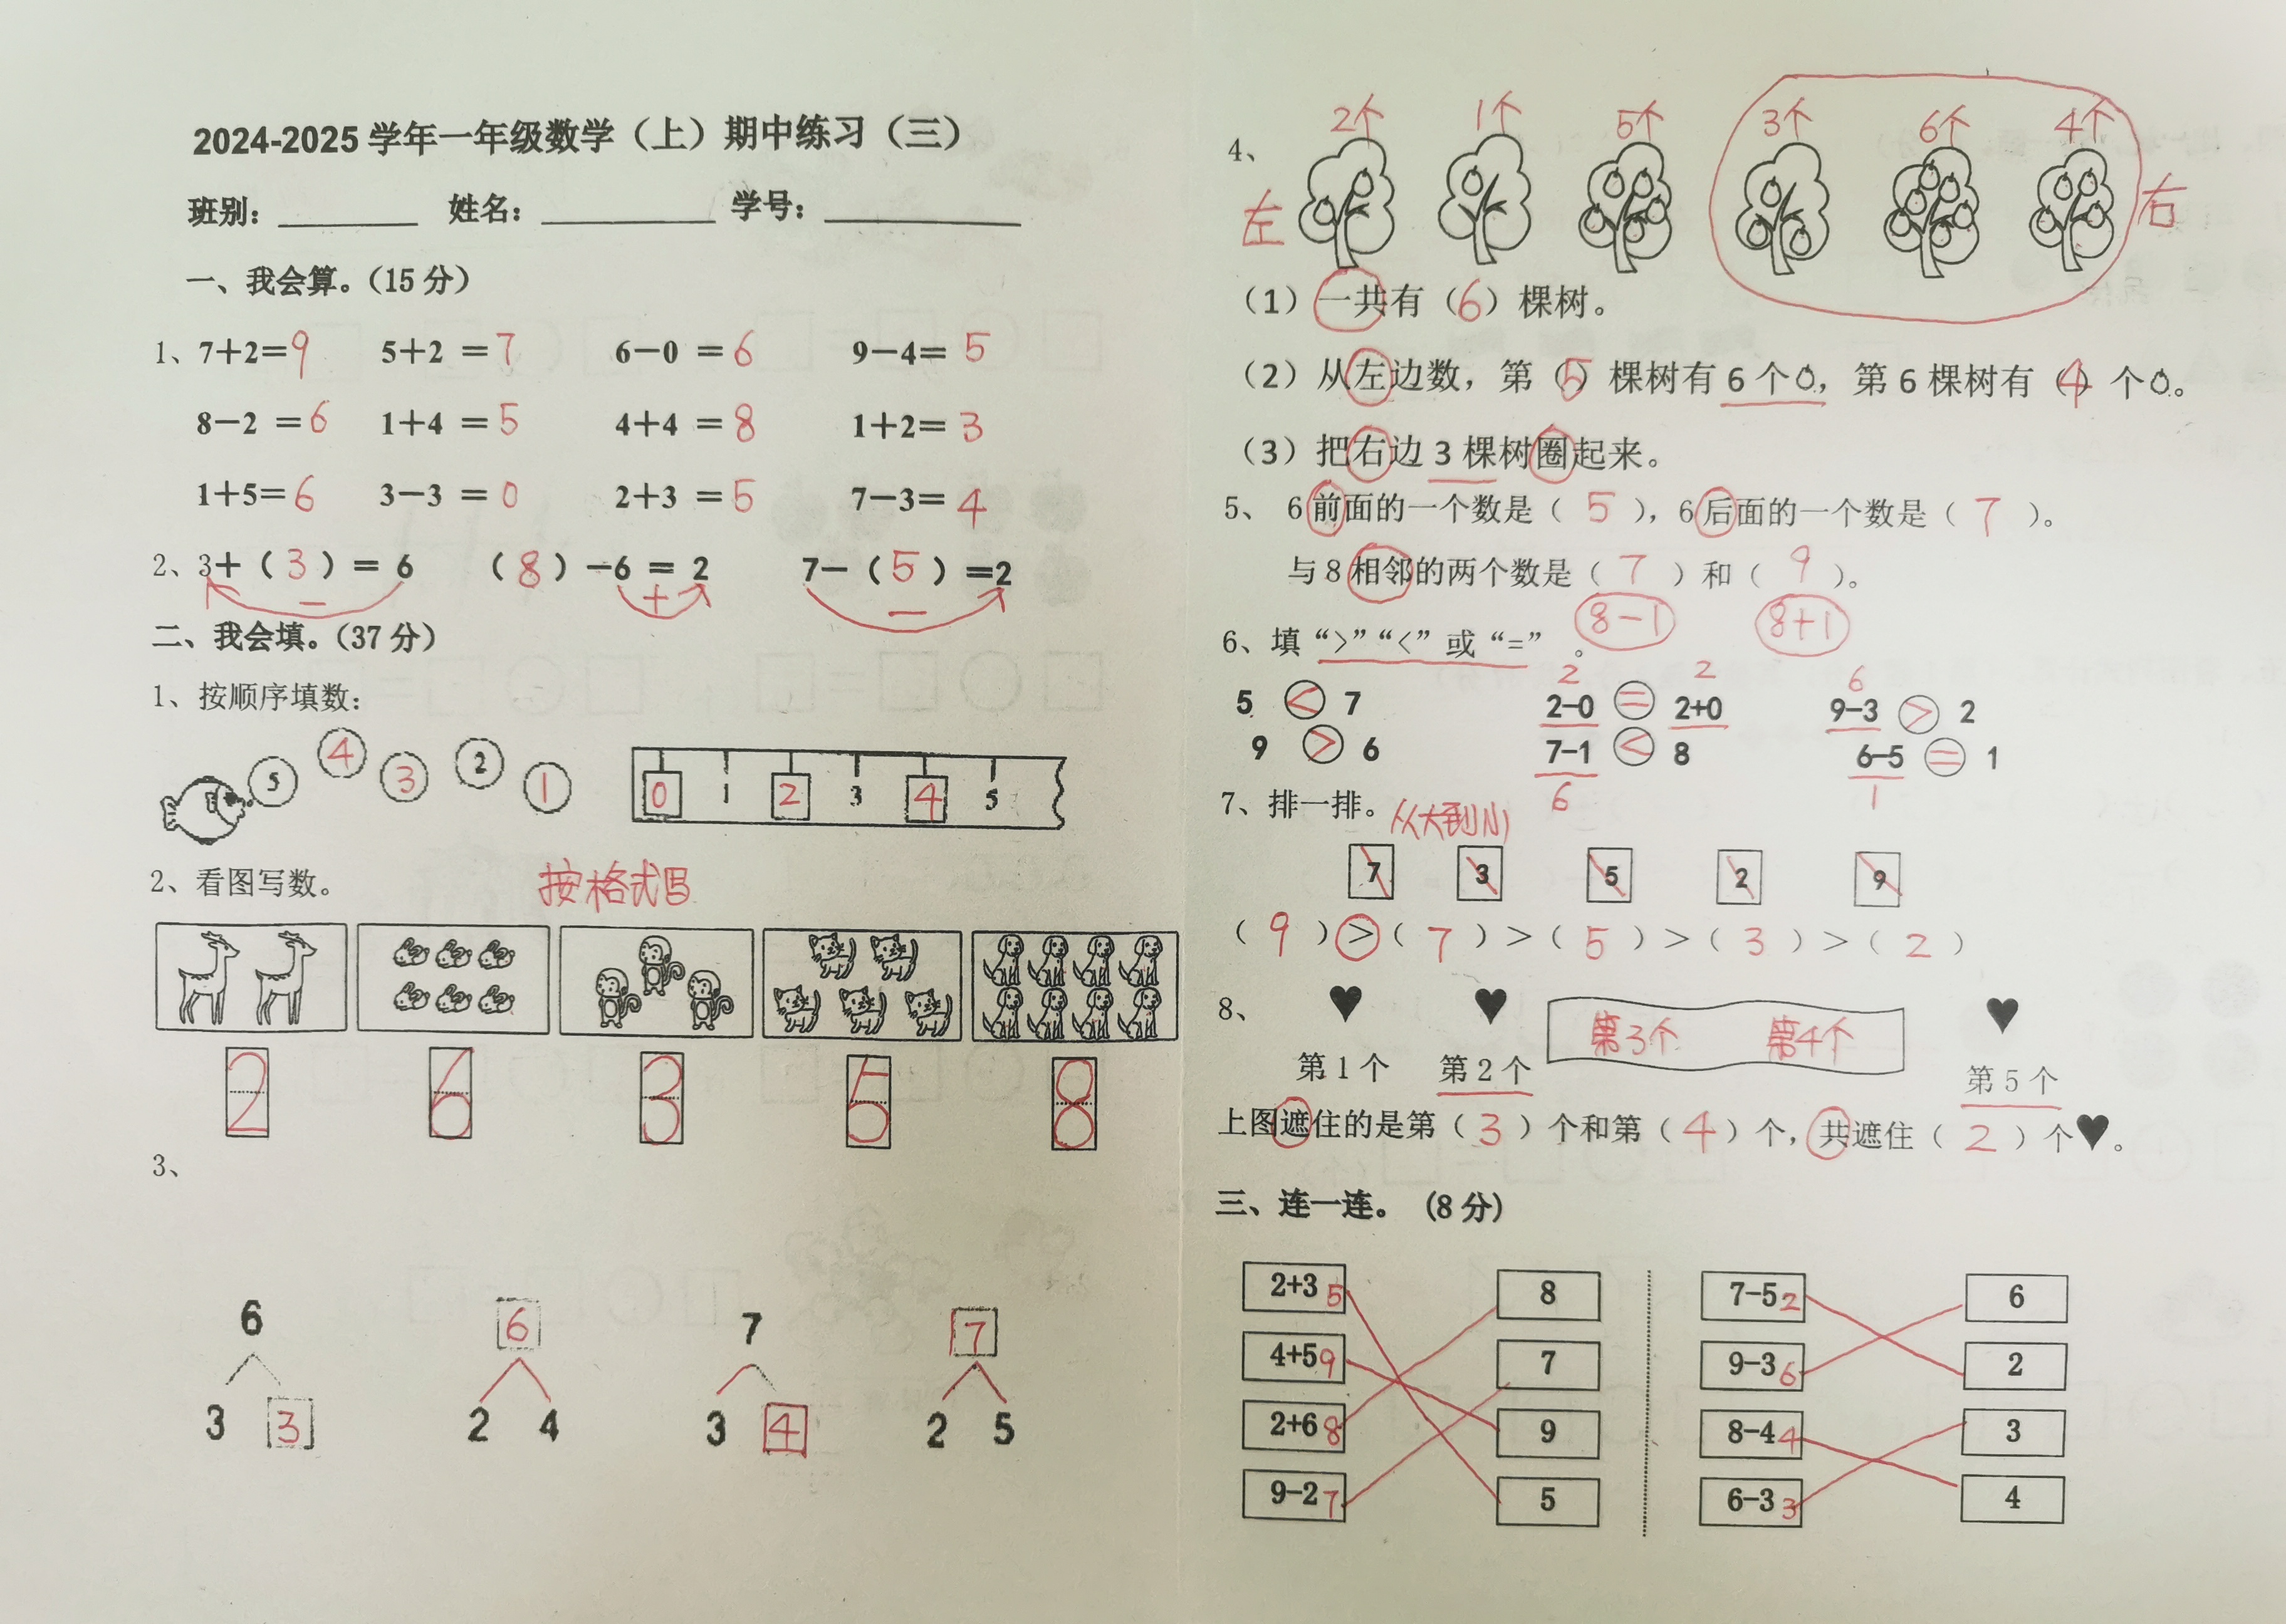 2024-2025 学年一年级数学（上）期中练习（三）
班别：________ 姓名：__________ 学号：___________
一、我会算。（15 分）
1、7+2=9 5+2 =7 6－0 =6 9－4= 5
8－2 =6 1+4 =5 4+4 =8 1+2= 3
1+5=6 3－3 =0 2+3 =5 7－3= 4
2、3+（3）= 6 （8）－6 = 2 7－（5）=2
－ + －
二、我会填。（37 分）
1、按顺序填数：
5 4 3 2 1 0 1 2 3 4 5
2、看图写数。 按格式写
2 6 3 5 8
3、
6 6 7 7
3 3 2 4 3 4 2 5
2个 1个 5个 3个 6个 4个
4、
左 右
（1）一共有（6）棵树。
（2）从左边数，第（5）棵树有 6 个，第 6 棵树有（4）个。
（3）把右边 3 棵树圈起来。
5、 6 前面的一个数是（ 5 ），6 后面的一个数是（ 7 ）。
与 8 相邻的两个数是（ 7 ）和（ 9 ）。
8－1 8+1
6、填“>”“<”或“=”。
2 2 6
5 < 7 2-0 = 2+0 9-3 > 2
9 > 6 7-1 < 8 6-5 = 1
6 1
7、排一排。 从大到小
7 3 5 2 9
（ 9 ）>（ 7 ）>（ 5 ）>（ 3 ）>（ 2 ）
8、 ♥ ♥ 第3个 第4个 ♥
第 1 个 第 2 个 第 5 个
上图遮住的是第（ 3 ）个和第（ 4 ）个，共遮住（ 2 ）个♥。
三、连一连。 (8 分)
2+3 5 8 7-5 2 6
4+5 9 7 9-3 6 2
2+6 8 9 8-4 4 3
9-2 7 5 6-3 3 4